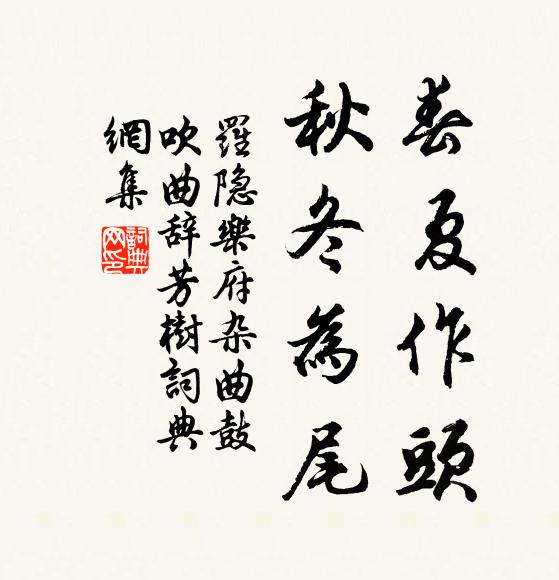 春夏作頭
秋冬為尾
羅隐樂府杂曲鼓
吹曲辞芳樹詞典
網集
詞典
网印